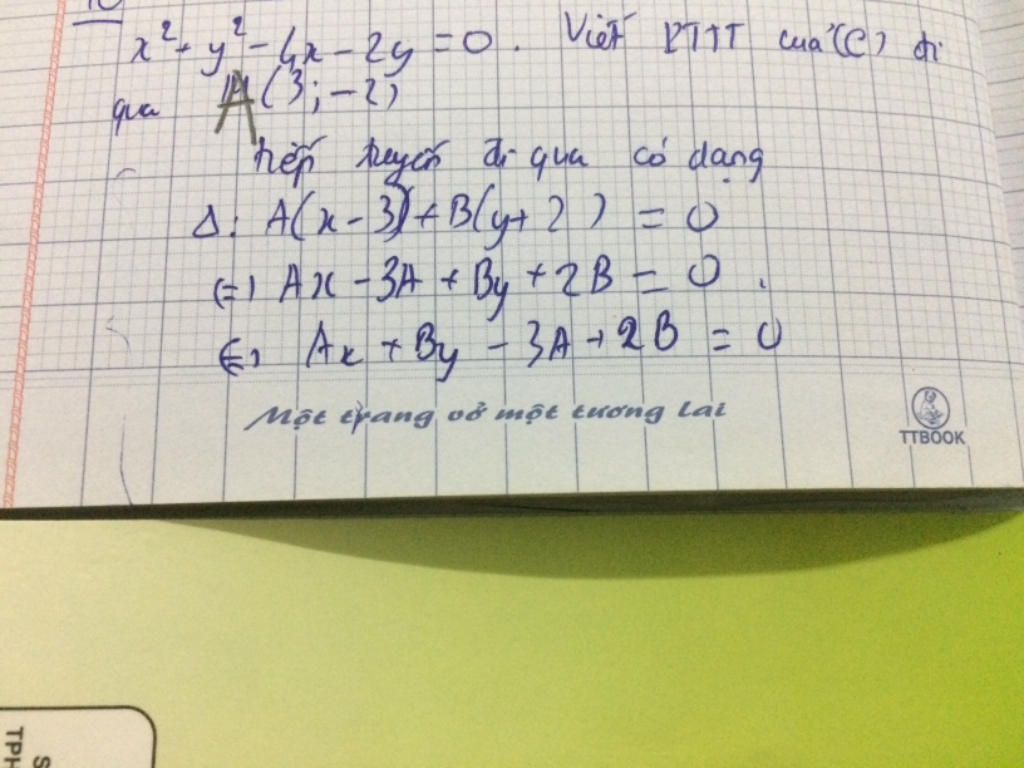 10
x² + y² - 4x - 2y = 0. Viết PTTT của (C) đi
qua A(3; -2)
tiếp tuyến đi qua có dạng
Δ: A(x - 3) + B(y + 2) = 0
(=) Ax - 3A + By + 2B = 0.
(=) Ax + By - 3A + 2B = 0
Một trang vở một tương lai
TTBOOK
S
TPH